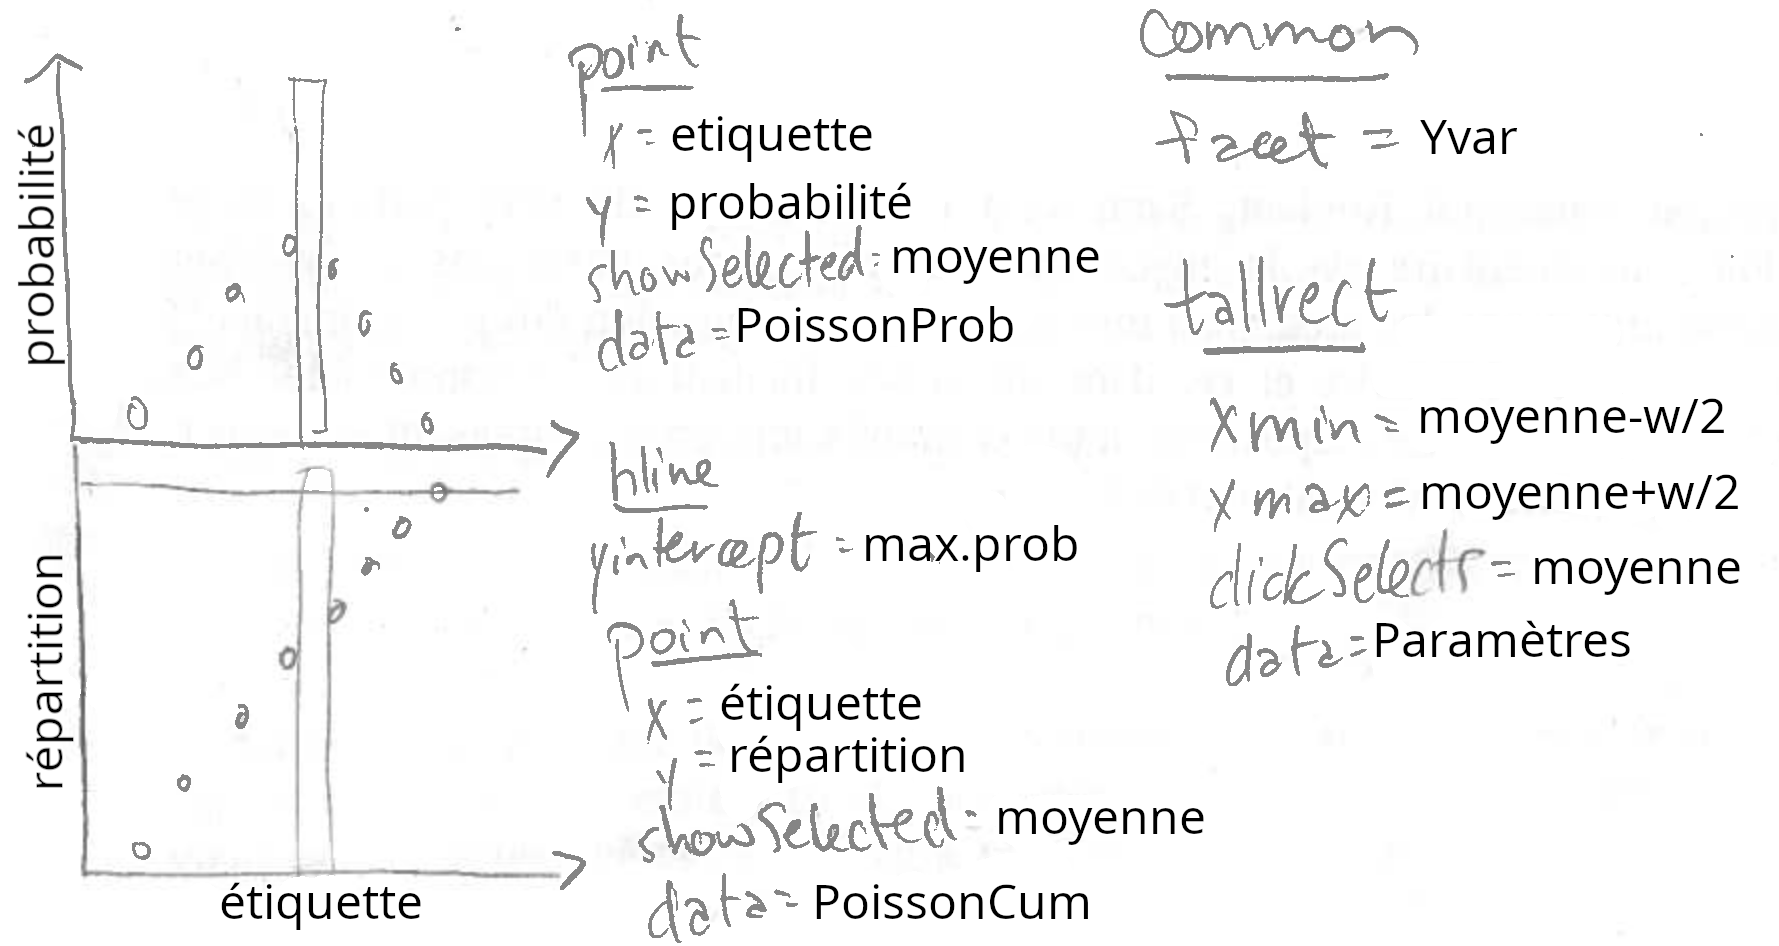 probabilité
répartition
étiquette
point
x = etiquette
y = probabilité
showSelected = moyenne
data = PoissonProb
hline
yintercept = max.prob
point
x = étiquette
y = répartition
showSelected = moyenne
data = PoissonCum
common
facet = Yvar
tallrect
xmin = moyenne-w/2
xmax = moyenne+w/2
clickSelects = moyenne
data = Paramètres